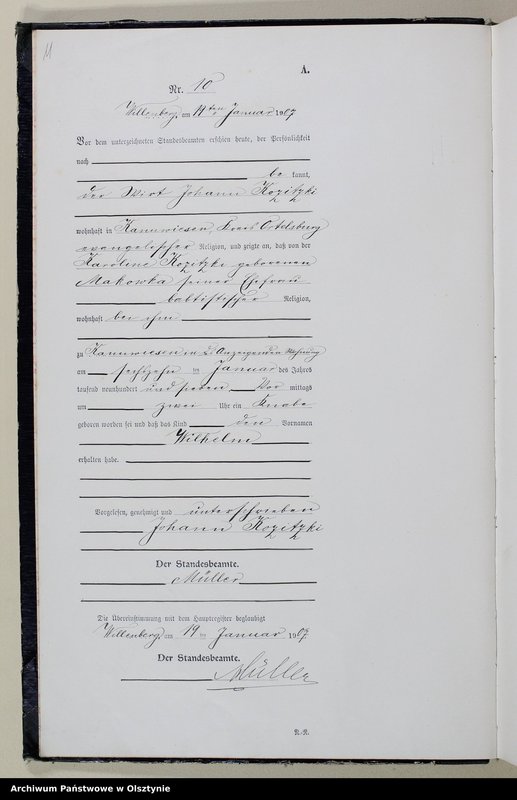 11
A.
Nr. 10
Willenberg, am 19ten Januar 1907
Vor dem unterzeichneten Standesbeamten erschien heute, der Persönlichkeit
nach
be kannt,
der Wirt Johann Kozitzki
wohnhaft in Kannwiesen, Kreis Ortelsburg
evangelischer Religion, und zeigte an, daß von der
Karoline Kozitzki geborenen
Makowka seiner Ehefrau
babtistischer Religion,
wohnhaft bei ihm
zu Kannwiesen in d. Anzeigenden Wohnung
am sechszehn ten Januar des Jahres
tausend neunhundert und sieben Vor mittags
um zwei Uhr ein Knabe
geboren worden sei und daß das Kind den Vornamen
Wilhelm
erhalten habe.
Vorgelesen, genehmigt und unterschrieben
Johann Kozitzki
Der Standesbeamte.
Müller
Die Übereinstimmung mit dem Hauptregister beglaubigt
Willenberg, am 19 ten Januar 1907
Der Standesbeamte.
Müller
R.-R.
Archiwum Państwowe w Olsztynie